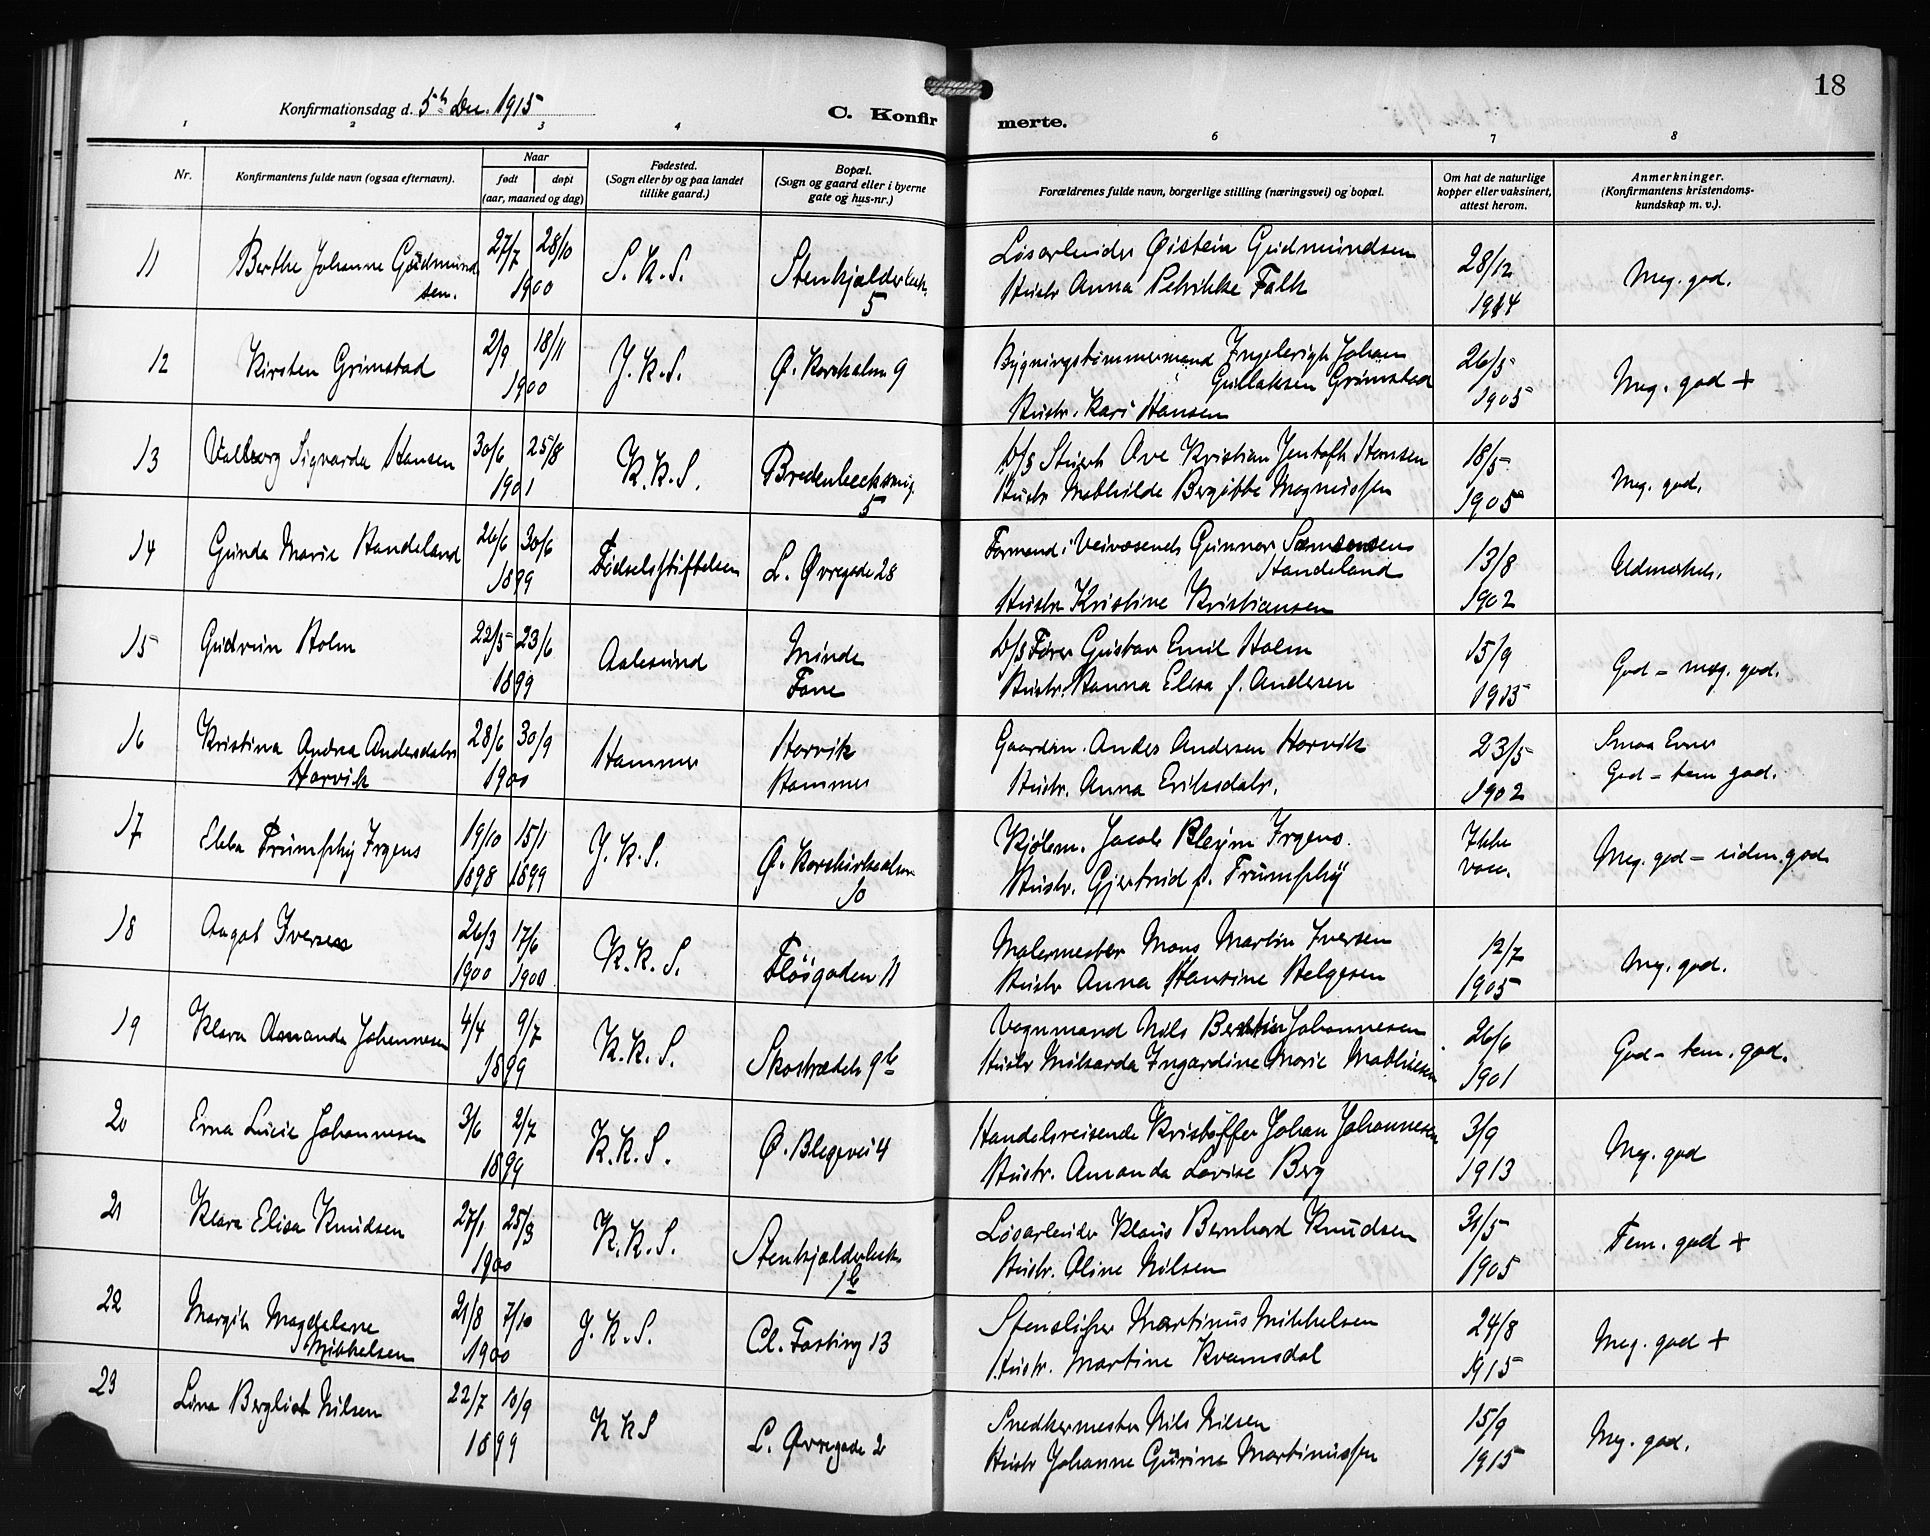 18
Konfirmationsdag d. 5te Dec. 1915
C. Konfirmerte.
1 2 3 4 6 7 8
Nr.
Konfirmantens fulde navn (ogsaa efternavn).
Naar
født døpt
(aar, maaned og dag)
Fødested.
(Sogn eller by og paa landet
tillike gaard.)
Bopæl.
(Sogn og gaard eller i byerne
gate og hus-nr.)
Forældrenes fulde navn, borgerlige stilling (næringsvei) og bopæl.
Om hat de naturlige
kopper eller vaksinert,
attest herom.
Anmerkninger.
(Konfirmantens kristendoms-
kundskap m. v.).
11 Berthe Johanne Gudmund
sen. 27/7 28/10 1900 S. K. S. Stenkjælderbek. 5
Løsarbeider Øistein Gudmundsen
Hustr Anna Petrikke Falk
28/12 1914 Meg. god.
12 Kirsten Grimstad 2/9 18/11 1900 J. K. S. Ø. Korskalm 9
Bygningstømmermand Ingebrigt Johan
Gullaksen Grimstad
Hustr. Kari Hansen
26/5 1905 Meg. god +
13 Valborg Sigvarda Hansen 30/6 25/8 1901 K. K. S. Bredenbecksmg. 5
b/s Stuert Ove Kristian Jentoft Hansen
Hustr Mathilde Bergitte Magnussen
18/5 1905 Meg. god.
14 Gunda Marie Handeland 26/6 30/6 1899 Fødselsstiftelsen L. Øvregade 28
Formand i Veivæsenet Gunnar Samsonsen
Handeland
Hustr Kristine Kristiansen
13/8 1902 Udmerket.
15 Gudrun Holm 22/5 23/6 1899 Aalesund Minde
Fane
b/s Fører Gustav Emil Holm
Hustr. Hanna Elisa f. Andersen
15/9 1913 God - meg. god.
16 Kristina Andrea Andersdatr
Horvik 28/6 30/9 1900 Hammer Horvik
Hammer
Gaardm. Anders Andersen Horvik
Hustr. Anna Eriksdatr.
23/5 1902 Smaa Evner
God - tem god.
17 Ebba Trumphy Irgens 19/10 1898 15/1 1899 J. K. S. Ø. Korskirkealm 10
Kjøbm. Jacob Bleym Irgens.
Hustr. Gjertrud f. Trumphy
Ikke
vacc. Meg. god - uden. god
18 Aagot Iversen 26/3 1900 17/6 1900 K. K. S. Fløigaden 11
Malermester Mons Martin Iversen
Hustr Anna Hansine Helgesen
12/7 1905 Meg. god.
19 Klara Amanda Johannesen 4/4 9/7 1899 K. K. S. Skostrædet 9b
Vognmand Nils Bertin Johannesen
Hustr Milvarda Ingardine Marie Mathisen
26/6 1901 God - tem. god.
20 Erna Lucie Johannesen 3/6 2/7 1899 K. K. S. Ø. Blegevei 4
Handelsreisende Kristoffer Johan Johannesen
Hustr. Amanda Lovise Berg
3/9 1913 Meg. god
21 Klara Elisa Knudsen 27/1 25/3 1900 K. K. S. Stenkjælderbek. 1b
Løsarbeider Klaus Bernhard Knudsen
Hustr. Oline Nilsen
31/5 1905 Tem. god +
22 Margit Magdalene
Mikkelsen 21/8 7/10 1900 J. K. S. Cl. Fasting 13
Stensliper Martinus Mikkelsen
Hustr. Martine Kvamsdal
24/8 1915 Meg. god +
23 Lina Bergliot Nilsen 22/7 10/9 1899 K K S L. Øvregade 2
Snedkermester Nils Nilsen
Hustr Johanne Gurine Martinussen
15/9 1915 Meg. god.